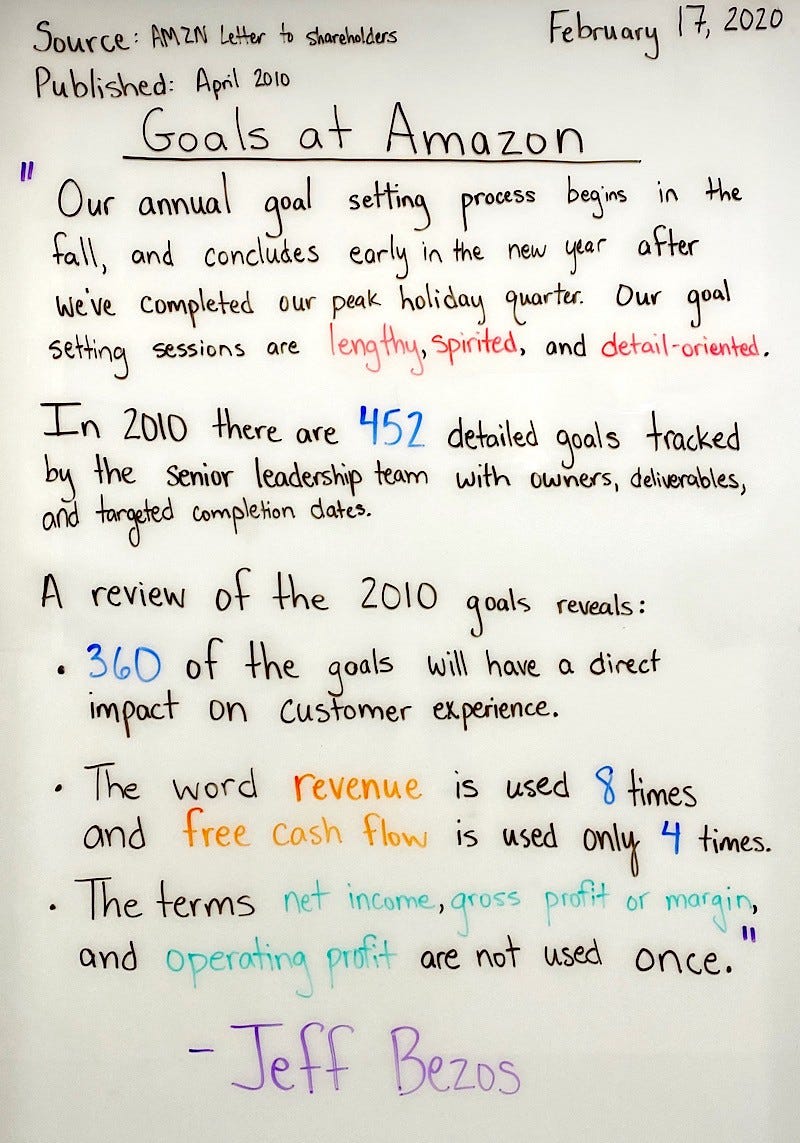 Source: AMZN Letter to Shareholders
February 17, 2020
Published: April 2010
Goals at Amazon
"Our annual goal setting process begins in the
fall, and concludes early in the new year after
we've completed our peak holiday quarter. Our goal
setting sessions are lengthy, spirited, and detail-oriented.
In 2010 there are 452 detailed goals tracked
by the senior leadership team with owners, deliverables,
and targeted completion dates.
A review of the 2010 goals reveals:
• 360 of the goals will have a direct
impact on customer experience.
• The word revenue is used 8 times
and free cash flow is used only 4 times.
• The terms net income, gross profit or margin,
and operating profit are not used once."
- Jeff Bezos